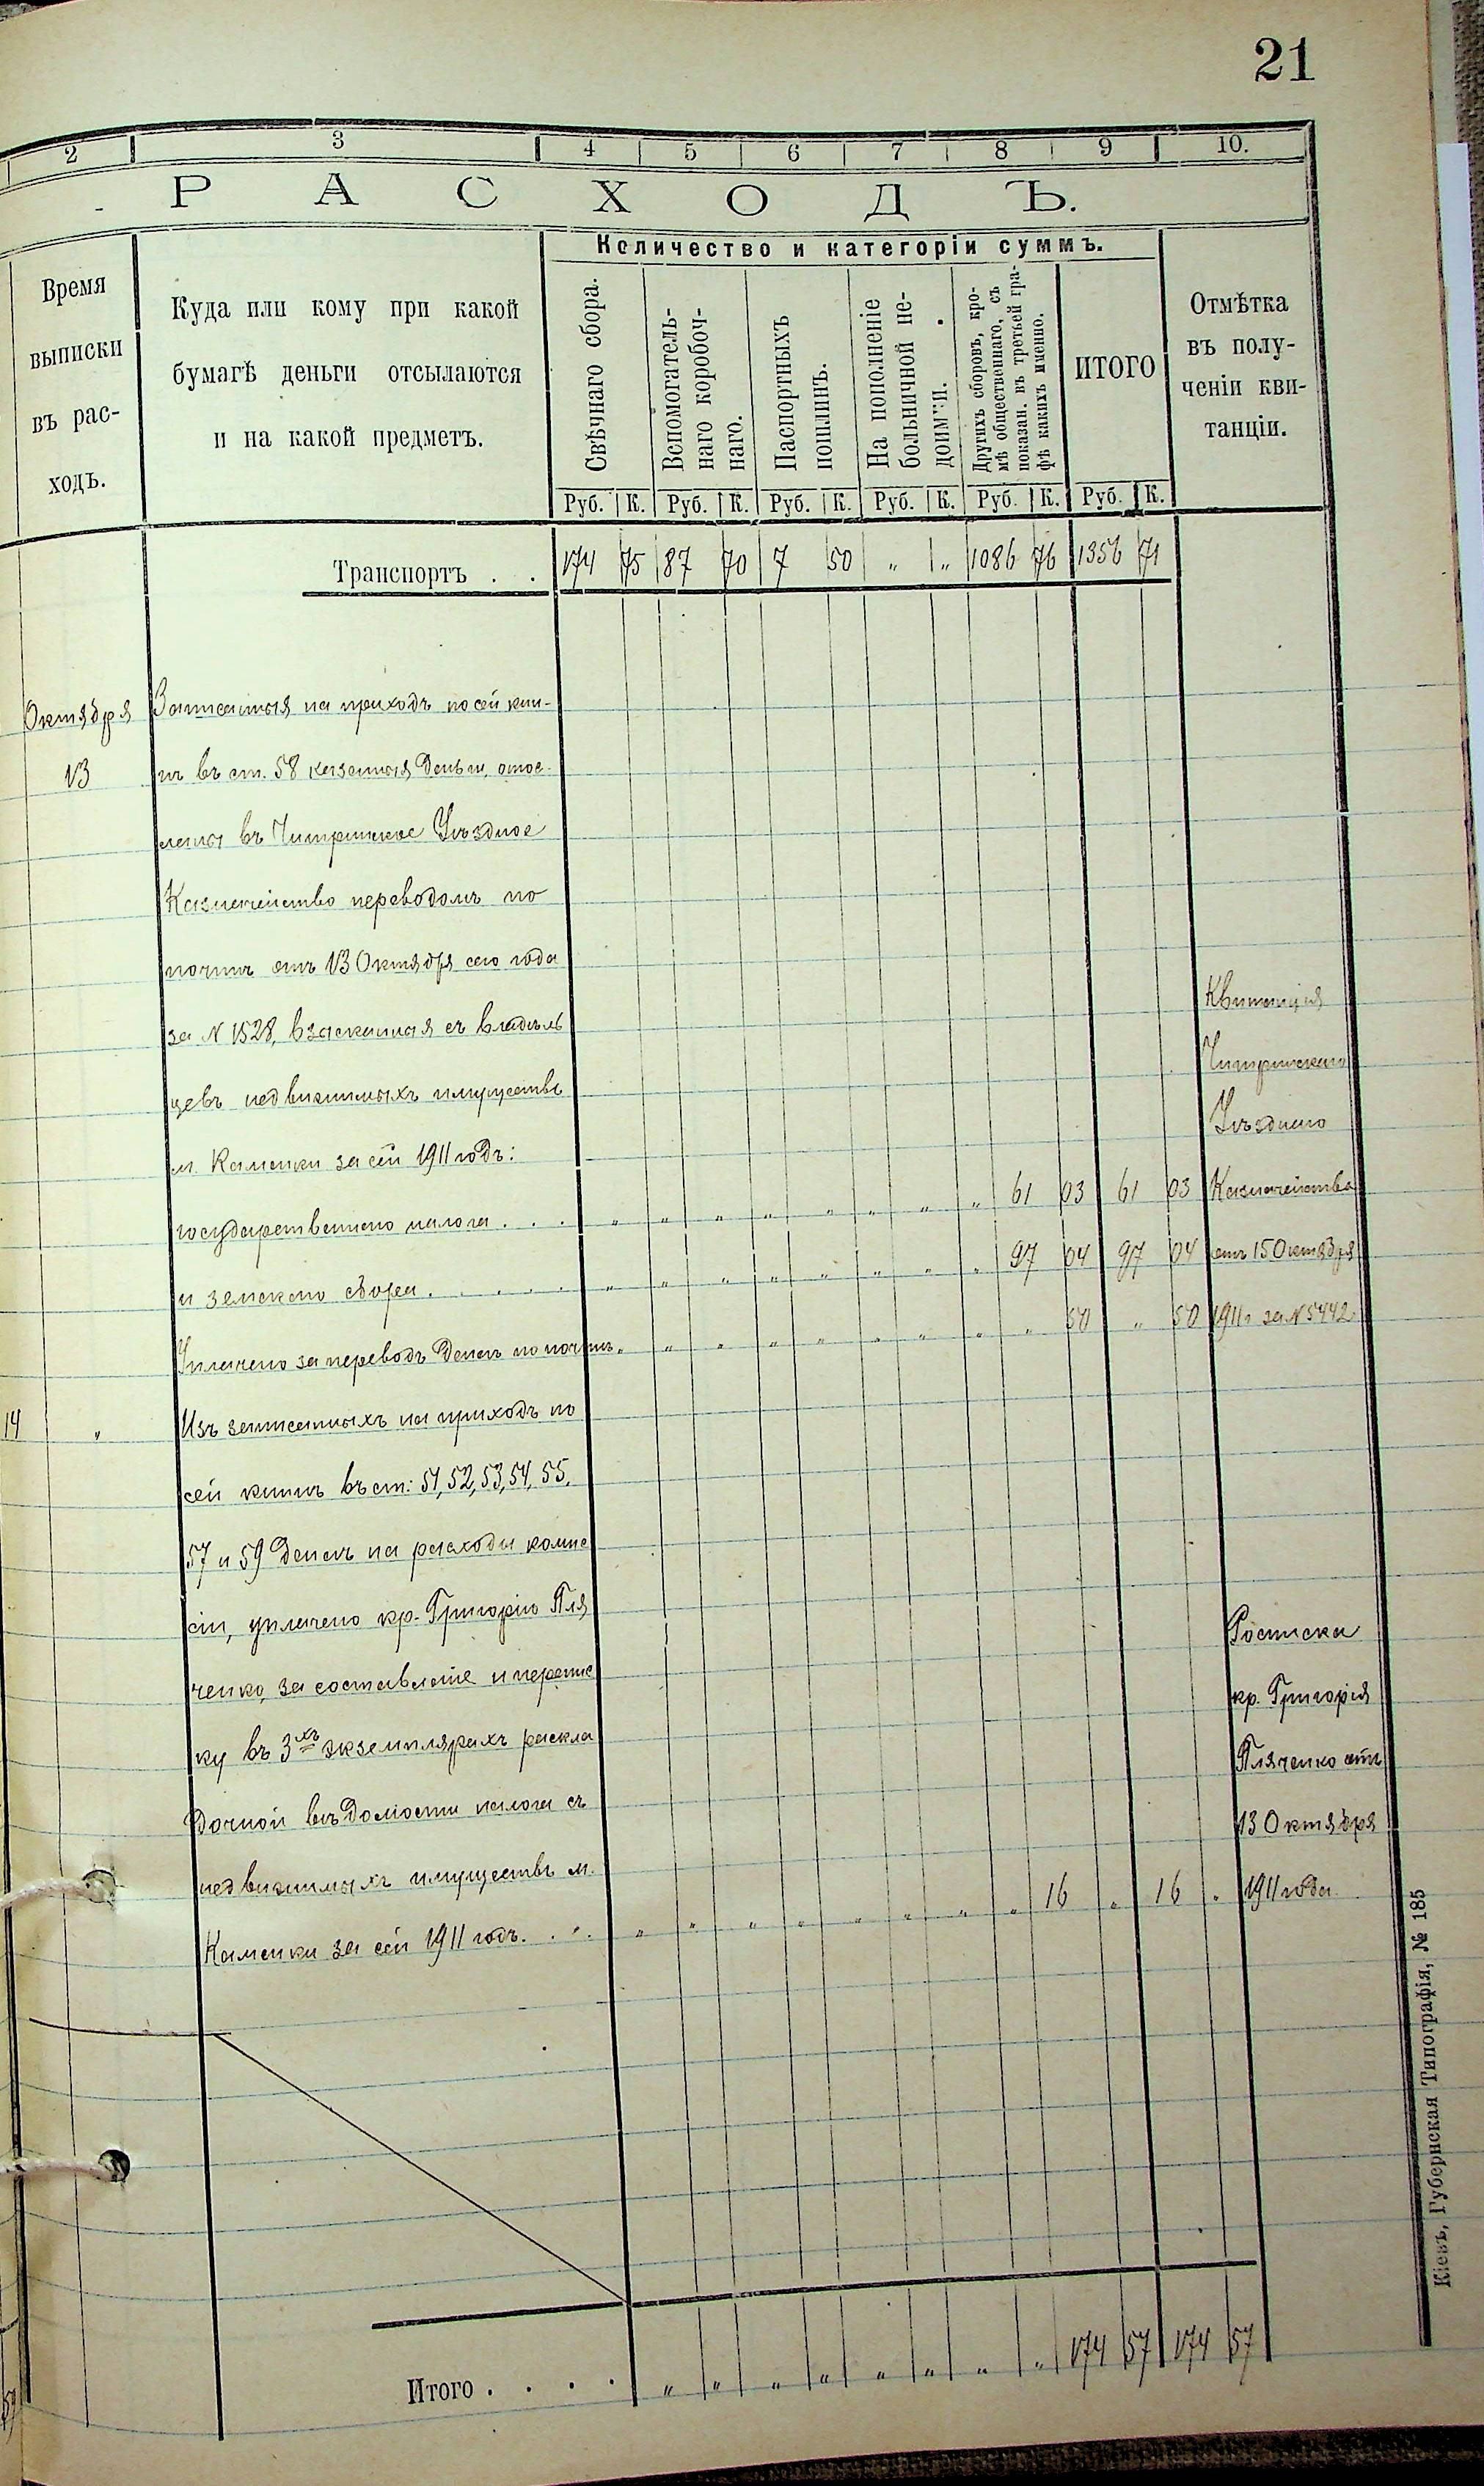 21
2 3 4 5 6 7 8 9 10.
РАСХОДЪ.
Время
выписки
въ рас-
ходъ.
Куда или кому при какой
бумагѣ деньги отсылаются
и на какой предметъ.
Количество и категоріи суммъ.
Свѣчнаго сбора.
Вспомогатель-
наго коробоч-
наго.
Паспортныхъ
пошлинъ.
На пополненіе
больничной не-
доимки.
Другихъ сборовъ, кро-
мѣ общественнаго, съ
показан. въ третьей гра-
фѣ какихъ именно.
ИТОГО
Отмѣтка
въ полу-
ченіи кви-
танціи.
Руб. К. Руб. К. Руб. К. Руб. К. Руб. К. Руб. К.
Транспортъ . . 174 75 87 70 7 50 „ „ 1086 76 1356 71
Октября Записанныя на приходъ по сей кни-
13 гѣ въ ст. 58 казенныя деньги, отос-
ланы въ Чигринское Уѣздное
Казначейство переводомъ по
почтѣ отъ 13 Октября сего года
за N 1528, взысканныя съ владѣль
цевъ недвижимыхъ имуществъ
м. Каменки за сей 1911 годъ:
государственнаго налога . . . „ „ „ „ „ „ „ „ 61 03 61 03
и земскаго сбора . . . . . „ „ „ „ „ „ „ „ 97 04 97 04
Уплачено за переводъ денегъ по почтѣ „ „ „ „ „ „ „ „ „ 50 „ 50
Квитанція
Чигринскаго
Уѣзднаго
Казначейства
отъ 15 Октября
1911 г. за N 5442
14 „ Изъ записанныхъ на приходъ по
сей книгѣ въ ст: 51, 52, 53, 54, 55,
57 и 59 денегъ на расходы комис
сіи, уплачено кр. Григорію Пля
ченко, за составленіе и перепис
ку въ 3хъ экземплярахъ раскла
дочной вѣдомости налога съ
недвижимыхъ имуществъ м.
Каменки за сей 1911 годъ. . . „ „ „ „ „ „ „ „ 16 „ 16 „
Росписка
кр. Григорія
Пляченко отъ
13 Октября
1911 года
Итого . . . . „ „ „ „ „ „ „ „ 174 57 174 57
Кіевъ, Губернская Типографія, № 185